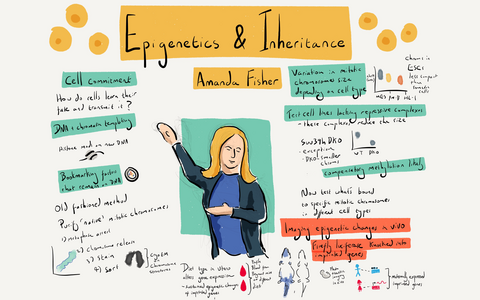 Epigenetics & Inheritance
Amanda Fisher
Cell commitment
How do cells learn their
fate and transmit it?
DNA & chromatin templating
Histone mark on new DNA
Bookmarking factors
that remain on DNA
Old fashioned method
Purify 'native' mitotic chromosomes
1) metaphase arrest
2) chromosome release
3) Stain
4) Sort
Variation in mitotic
chromosome size
depending on cell type
Chroms in
ESCs
less compact
than
Somatic
cells
Test cell lines lacking repressive complexes
- these complexes reduce the size
Suv39h DKO
- exception
- DKO smaller
chroms
WT DKO
compensatory methylation likely
Now test what's bound
to specific mitotic chromosomes
in different cell types
Imaging epigenetic changes in vivo
Firefly luciferase knocked into
imprinted genes
Diet type in utero
alters gene expression
- sustained epigenetic changes
of imprinted genes
maternal
imprinted
genes